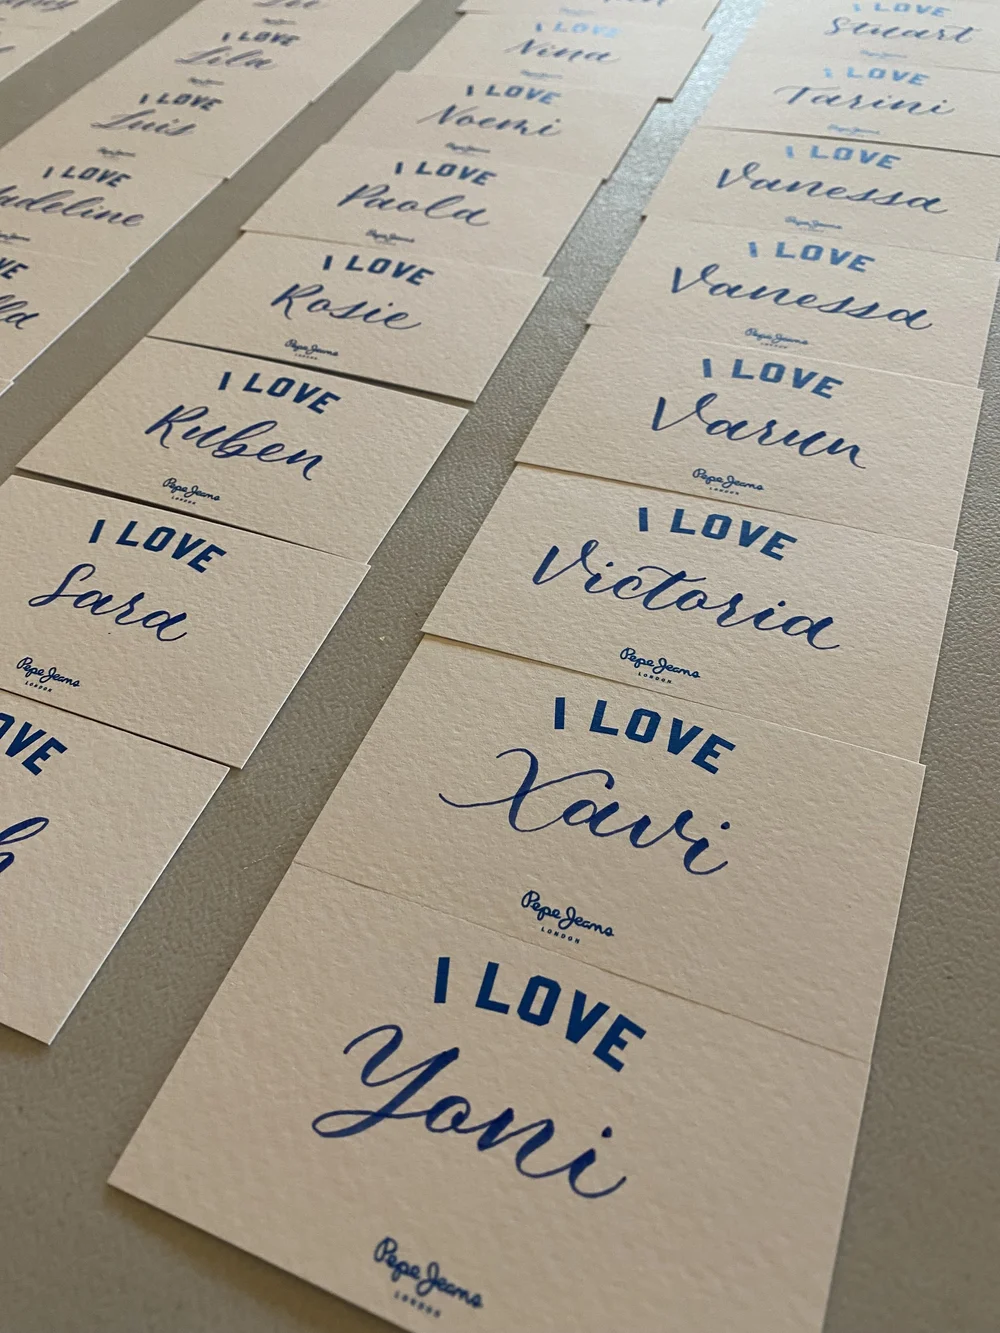 I LOVE
Lila
Pepe Jeans
I LOVE
Luis
Pepe Jeans
I LOVE
Pepe Jeans
I LOVE
Nina
Pepe Jeans
I LOVE
Noemi
Pepe Jeans
I LOVE
Paola
Pepe Jeans
I LOVE
Rosie
Pepe Jeans
LONDON
I LOVE
Ruben
Pepe Jeans
LONDON
I LOVE
Sara
Pepe Jeans
LONDON
I LOVE
Stuart
Pepe Jeans
I LOVE
Tarini
Pepe Jeans
I LOVE
Vanessa
Pepe Jeans
I LOVE
Vanessa
Pepe Jeans
LONDON
I LOVE
Varun
Pepe Jeans
LONDON
I LOVE
Victoria
Pepe Jeans
LONDON
I LOVE
Xavi
Pepe Jeans
LONDON
I LOVE
Yoni
Pepe Jeans
LONDON